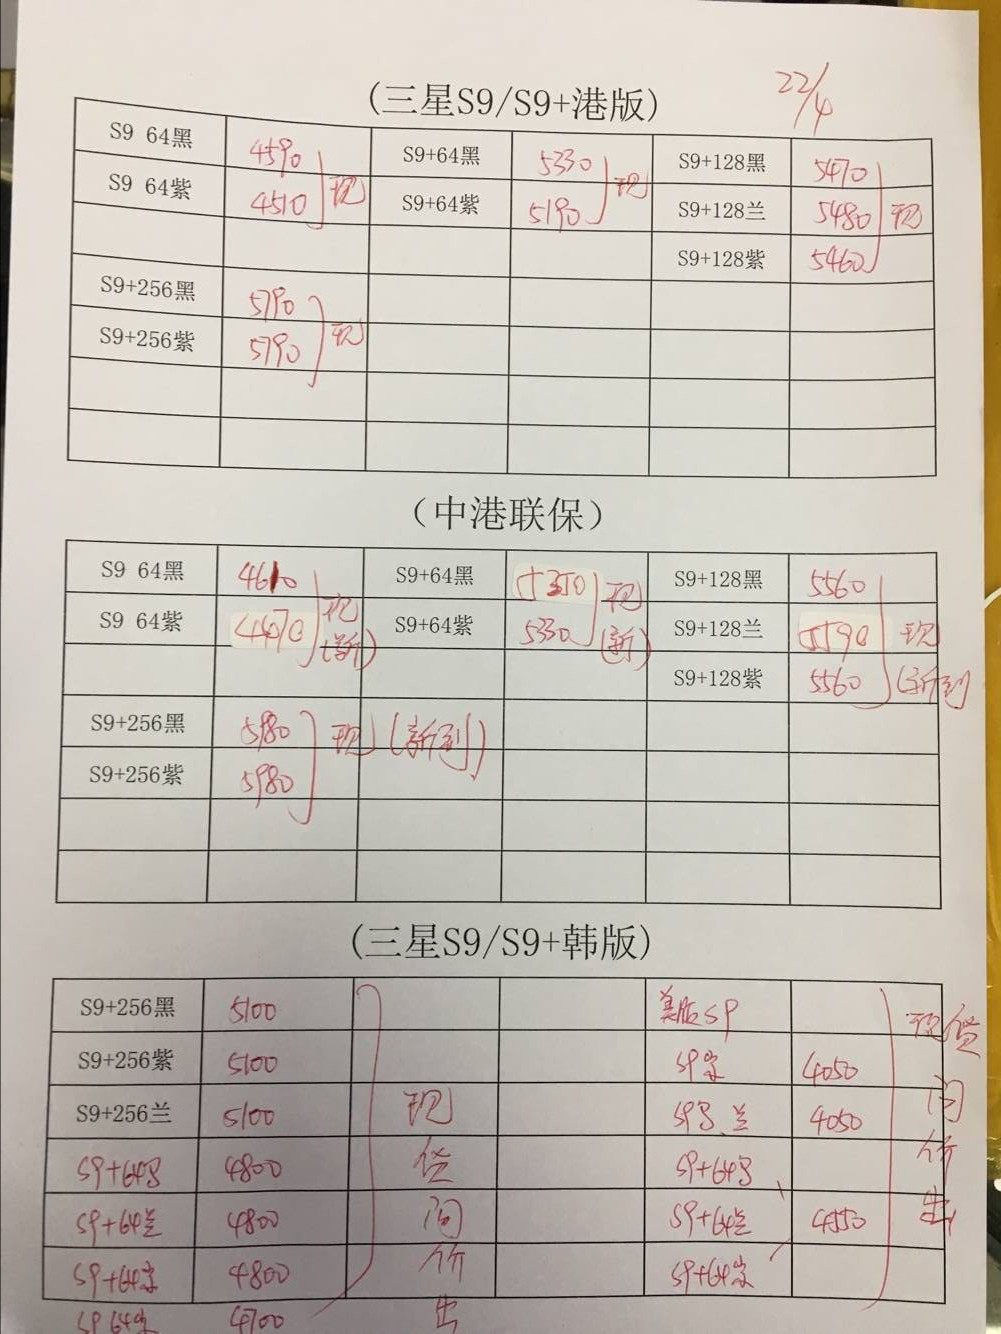 (三星S9/S9+港版) 22/4
S9 64黑 4590 S9+64黑 5330 S9+128黑 5470
S9 64紫 4510 现 S9+64紫 5190 现 S9+128兰 5480 现
S9+128紫 5460
S9+256黑 5790
S9+256紫 5790 现
（中港联保）
S9 64黑 4610 S9+64黑 5350 现 S9+128黑 5560
S9 64紫 4470 现(新) S9+64紫 5330 (新) S9+128兰 5590 现
S9+128紫 5560 (新到
S9+256黑 5980 现(新到)
S9+256紫 5980
(三星S9/S9+韩版)
S9+256黑 5100 美版S9 现货
S9+256紫 5100 S9紫 4050 问
S9+256兰 5100 现 S9 兰 4050 价
S9+64 4800 货 S9+64 出
S9+64兰 4800 问 S9+64兰 4550
S9+64紫 4800 价 S9+64紫
S9 64紫 4700 出